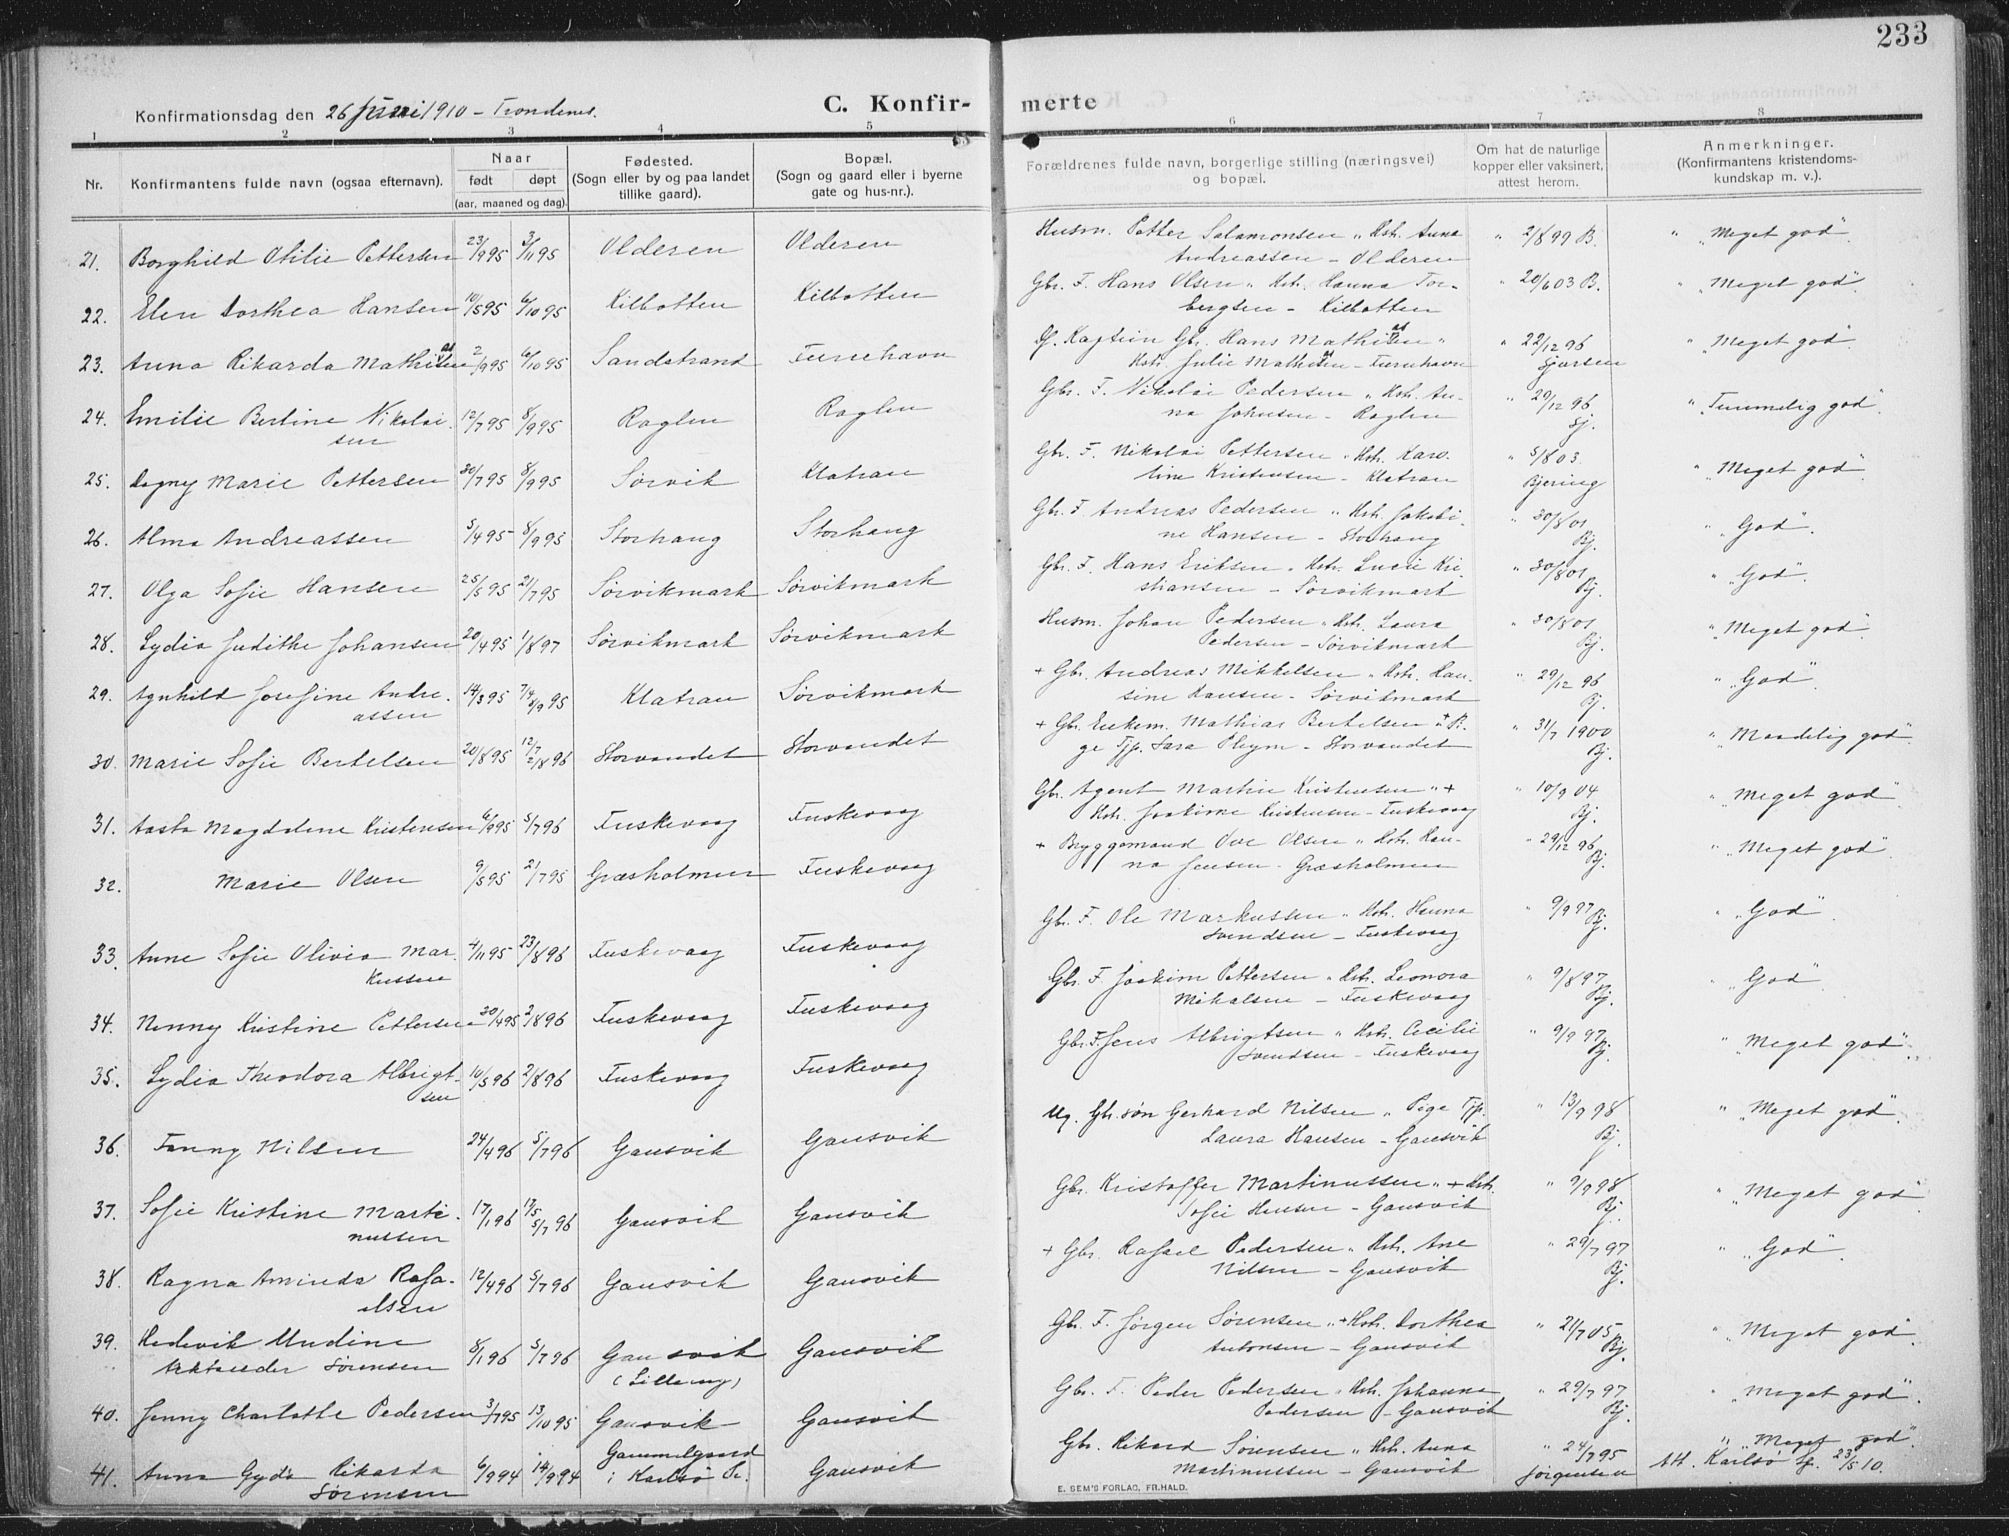 233
Konfirmationsdag den 26 Juni 1910 - Trondenes.
C. Konfirmerte
1 2 3 4 5 6 7 8
Nr.
Konfirmantens fulde navn (ogsaa efternavn).
Naar
født døpt
(aar, maaned og dag).
Fødested.
(Sogn eller by og paa landet
tillike gaard).
Bopæl.
(Sogn og gaard eller i byerne
gate og hus-nr.).
Forældrenes fulde navn, borgerlige stilling (næringsvei)
og bopæl.
Om hat de naturlige
kopper eller vaksinert,
attest herom.
Anmerkninger.
(Konfirmantens kristendoms-
kundskap m. v.).
21. Borghild Otilie Pettersen 23/9 95 3/11 95 Olderen Olderen Husm. Petter Salamonsen " Hstr. Anna " 2/8 99 B. " "Meget god".
Andreassen - Olderen
22. Elen Dorthea Hansen 10/5 95 6/10 95 Kilbotten Kilbotten Gbr. F. Hans Olsen " Hstr. Hanna Tor- " 20/6 03 B. " "Meget god".
bergsen - Kilbotten
23. Anna Rikarda Mathisen 2/9 95 6/10 95 Sandstrand Furuhavn Kaptein Gbr. Hans Mathisen " " 22/12 96 " "Meget god".
Hstr. Julie Mathisen - Furuhavn Sjursen
24. Emilie Berline Nikolai- 12/7 95 8/9 95 Roglen Roglen Gbr. F. Nikolai Pedersen " Hstr. An- " 29/12 96 " "Temmelig god".
sen na Johnsen - Roglen Sj.
25. Dagny Marie Pettersen 30/7 95 8/9 95 Sørvik Klatran Gbr. F. Nikolai Pettersen " Hstr. Karo- " 5/8 03 " "Meget god".
line Kristensen - Klatran Bjering
26. Alma Andreassen 5/4 95 8/9 95 Storhaug Storhaug Gbr. F. Andreas Pedersen " Hstr. Jakobi- " 30/8 01 " "God".
ne Hansen - Storhaug Bj.
27. Olga Sofie Hansen 25/5 95 21/7 95 Sørvikmark Sørvikmark Gbr. F. Hans Eriksen " Hstr. Lucie Kri- " 30/8 01 " "God".
stiansen - Sørvikmark Bj.
28. Lydia Judithe Johansen 20/4 95 1/8 97 Sørvikmark Sørvikmark Husm. Johan Pedersen " Hstr. Laura " 30/8 01 " "Meget god".
Pedersen - Sørvikmark Bj.
29. Agnhild Josefine Andre- 14/3 95 7/4 8/9 95 Klatran Sørvikmark + Gbr. Andreas Mikkelsen " Hstr. Han- " 29/12 96 " "God".
assen sine Hansen - Sørvikmark Bj.
30. Marie Sofie Bertelsen 20/8 95 12/7 2/8 96 Storvandet Storvandet + Gbr. Enkem. Mathias Bertelsen " + Pi- " 31/7 1900 " "Maadelig god".
ge Tjp. Sara Pleym - Storvandet Bj.
31. Aasta Magdalene Kristensen 6/9 95 5/7 96 Fuskevaag Fuskevaag Gbr. Agent Martin Kristensen " + " 10/9 04 " "Meget god".
Hstr. Joakime Kristensen - Fuskevaag Bj.
32. Marie Olsen 9/5 95 21/7 95 Græsholmen Fuskevaag + Bryggemand Ove Olsen " Hstr. Han- " 29/12 96 " "Meget god".
na Jensen - Græsholmen Bj.
33. Anne Sofie Olivia Mar- 4/11 95 23/8 96 Fuskevaag Fuskevaag Gbr. F. Ole Markussen " Hstr. Hanna " 9/9 97 " "God".
kussen Svendsen - Fuskevaag Bj.
34. Nenny Kristine Pettersen 30/4 95 2/8 96 Fuskevaag Fuskevaag Gbr. F. Joakim Pettersen " Hstr. Leonora " 9/8 97 " "God".
Mikalsen - Fuskevaag Bj.
35. Lydia Theodora Albrigt- 10/5 96 2/8 96 Fuskevaag Fuskevaag Gbr. F. Jens Albrigtsen " Hstr. Cecilie " 9/9 97 " "Meget god".
sen Svendsen - Fuskevaag Bj.
36. Fanny Nilsen 24/4 96 5/7 96 Gausvik Gausvik Ug. Gbr. søn Gerhard Nilsen " Pige Tjp. " 13/9 98 " "Meget god".
Laura Hansen - Gausvik Bj.
37. Sofie Kristine Marti- 17/1 96 17/5 5/7 96 Gausvik Gausvik Gbr. Kristoffer Martinussen " + Hstr. " 9/9 98 " "Meget god".
nussen Sofie Hansen - Gausvik Bj.
38. Ragna Aminda Rafa- 12/4 96 5/7 96 Gausvik Gausvik + Gbr. Rafael Pedersen " Hstr. Ane " 29/7 97 " "God".
elsen Nilsen - Gausvik Bj.
39. Hedevik Undine 8/1 96 5/7 96 Gausvik Gausvik Gbr. F. Jørgen Sørensen " + Hstr. Dorthea " 21/7 05 " "Meget god".
Sørensen (Lilleng) Antonsen - Gausvik Bj.
40. Jenny Charlotte Pedersen 3/7 95 13/10 95 Gausvik Gausvik Gbr. F. Peder Pedersen " Hstr. Johanna " 29/7 97 " "Meget god".
Pedersen - Gausvik Bj.
41. Anna Gyda Rikarda 6/9 94 14/9 94 Gammelgaard Gausvik Gbr. Rikard Sørensen " Hstr. Anna " 24/7 95 " "Meget god".
Sørensen i Karlsø Pr. Martinussen - Gausvik Jørgensen Att. Karlsø Sp. 23/5 10.
E. SEM'S FORLAG, FR.HALD.